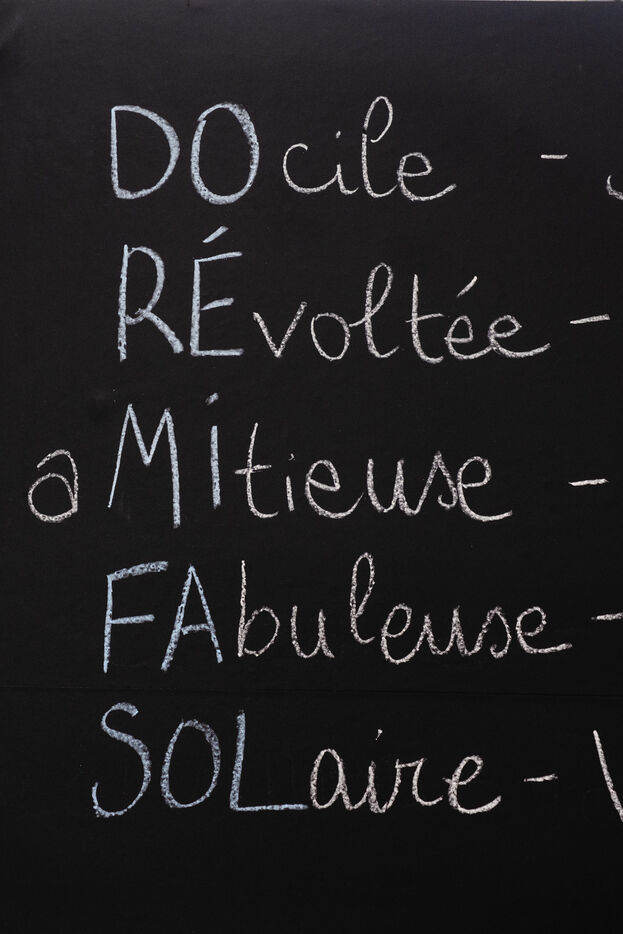 DOcile -
RÉvoltée -
aMitieuse -
FAbuleuse -
SOLaire -